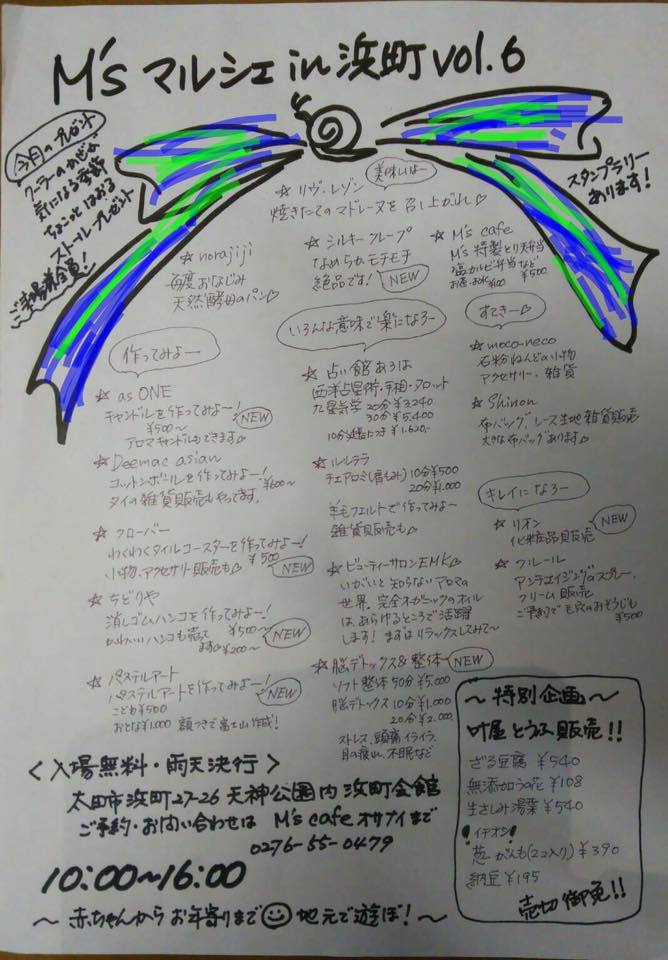 M's マルシェ in 浜町 vol.6
今月のプレゼント
クーラーのかぜが
気になる季節
ちょこっとはおる
ストールプレゼント
ご来場者全員!
スタンプラリー
あります!
美味しいよー
☆ リヴ・レゾン
焼きたてのマドレーヌを召し上がれ♡
☆ norajiji
毎度おなじみ
天然酵母のパン♡
☆ シルキークレープ
なめらかモチモチ
絶品です! NEW
☆ M's cafe
M's 特製とり弁当
塩カルビ弁当など
¥500
作ってみよー
☆ as ONE
キャンドルを作ってみよー!
¥500〜 NEW
アロマキャンドルもできます♡
☆ Deemac asian
コットンボールを作ってみよー!
¥600〜
タイの雑貨販売もやってます。
☆ クローバー
わくわくタイルコースターを作ってみよー!
¥500
小物、アクセサリー販売も♡ NEW
☆ ちどりや
消しゴムハンコを作ってみよー!
¥500〜
かわいいハンコも売ってます ¥200〜 NEW
☆ パステルアート
パステルアートを作ってみよー! NEW
こども¥500
おとな¥1.000 額つきで富士山作成!
いろんな意味で楽になろー
☆ 占い館 あろは
西洋占星術・手相・タロット
九星気学 20分 ¥3240
30分 ¥5.400
10分延長につき ¥1.620.-
☆ ルルテラ
チェアロミ(肩もみ) 10分¥500
20分¥1.000
羊毛フェルトで作ってみよー
雑貨販売も♡
☆ ビューティーサロンEMK♡
いがいと知らないアロマの
世界。完全オーガニックのオイル
は、あらゆるところで活躍
します! まずはリラックスしてみて〜
☆ 脳デトックス&整体 NEW
ソフト整体 50分 ¥5.000
脳デトックス 10分 ¥1.000
20分 ¥2.000
ストレス、頭痛、イライラ、
目の疲れ、不眠など
すてきー♡
☆ moco-neco
石粉ねんどの小物
アクセサリー・雑貨
☆ Shinon
布バッグ、レース生地雑貨販売
大きな布バッグあります♡
キレイになろー
☆ リオン NEW
化粧品販売
☆ フルール
アンチエイジングのスプレー、
クリーム販売
ご予約で毛穴のおそうじも
¥500
〜特別企画〜
叶屋とうふ販売!!
ざる豆腐 ¥540
無添加うの花 ¥108
生さしみ湯葉 ¥540
!イチオシ!
葱がんも(2コ入り) ¥390
納豆 ¥195
売切御免!!
<入場無料・雨天決行>
太田市浜町27-26 天神公園内 浜町会館
ご予約・お問い合わせは M's cafe オサナイまで
0276-55-0479
10:00〜16:00
〜赤ちゃんからお年寄りまで 地元で遊ぼ!〜